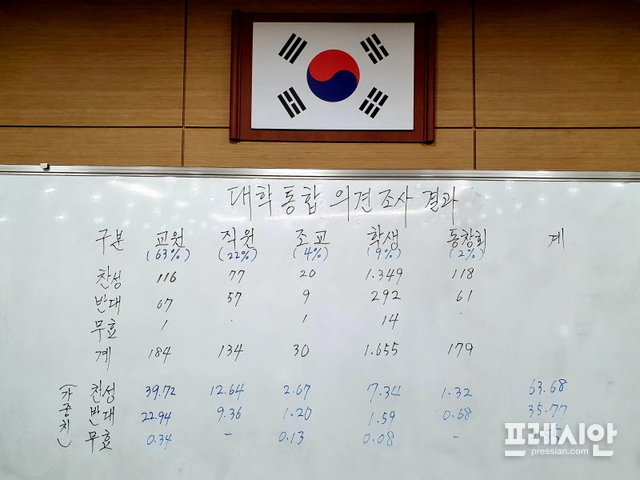 대학통합 의견조사 결과
구분 교원 직원 조교 학생 동창회 계
(63%) (22%) (4%) (9%) (2%)
찬성 116 77 20 1.349 118
반대 67 57 9 292 61
무효 1 . 1 14 .
계 184 134 30 1.655 179
(가중치)
찬성 39.72 12.64 2.67 7.34 1.32 63.68
반대 22.94 9.36 1.20 1.59 0.68 35.77
무효 0.34 - 0.13 0.08 -
프레시안
pressian.com